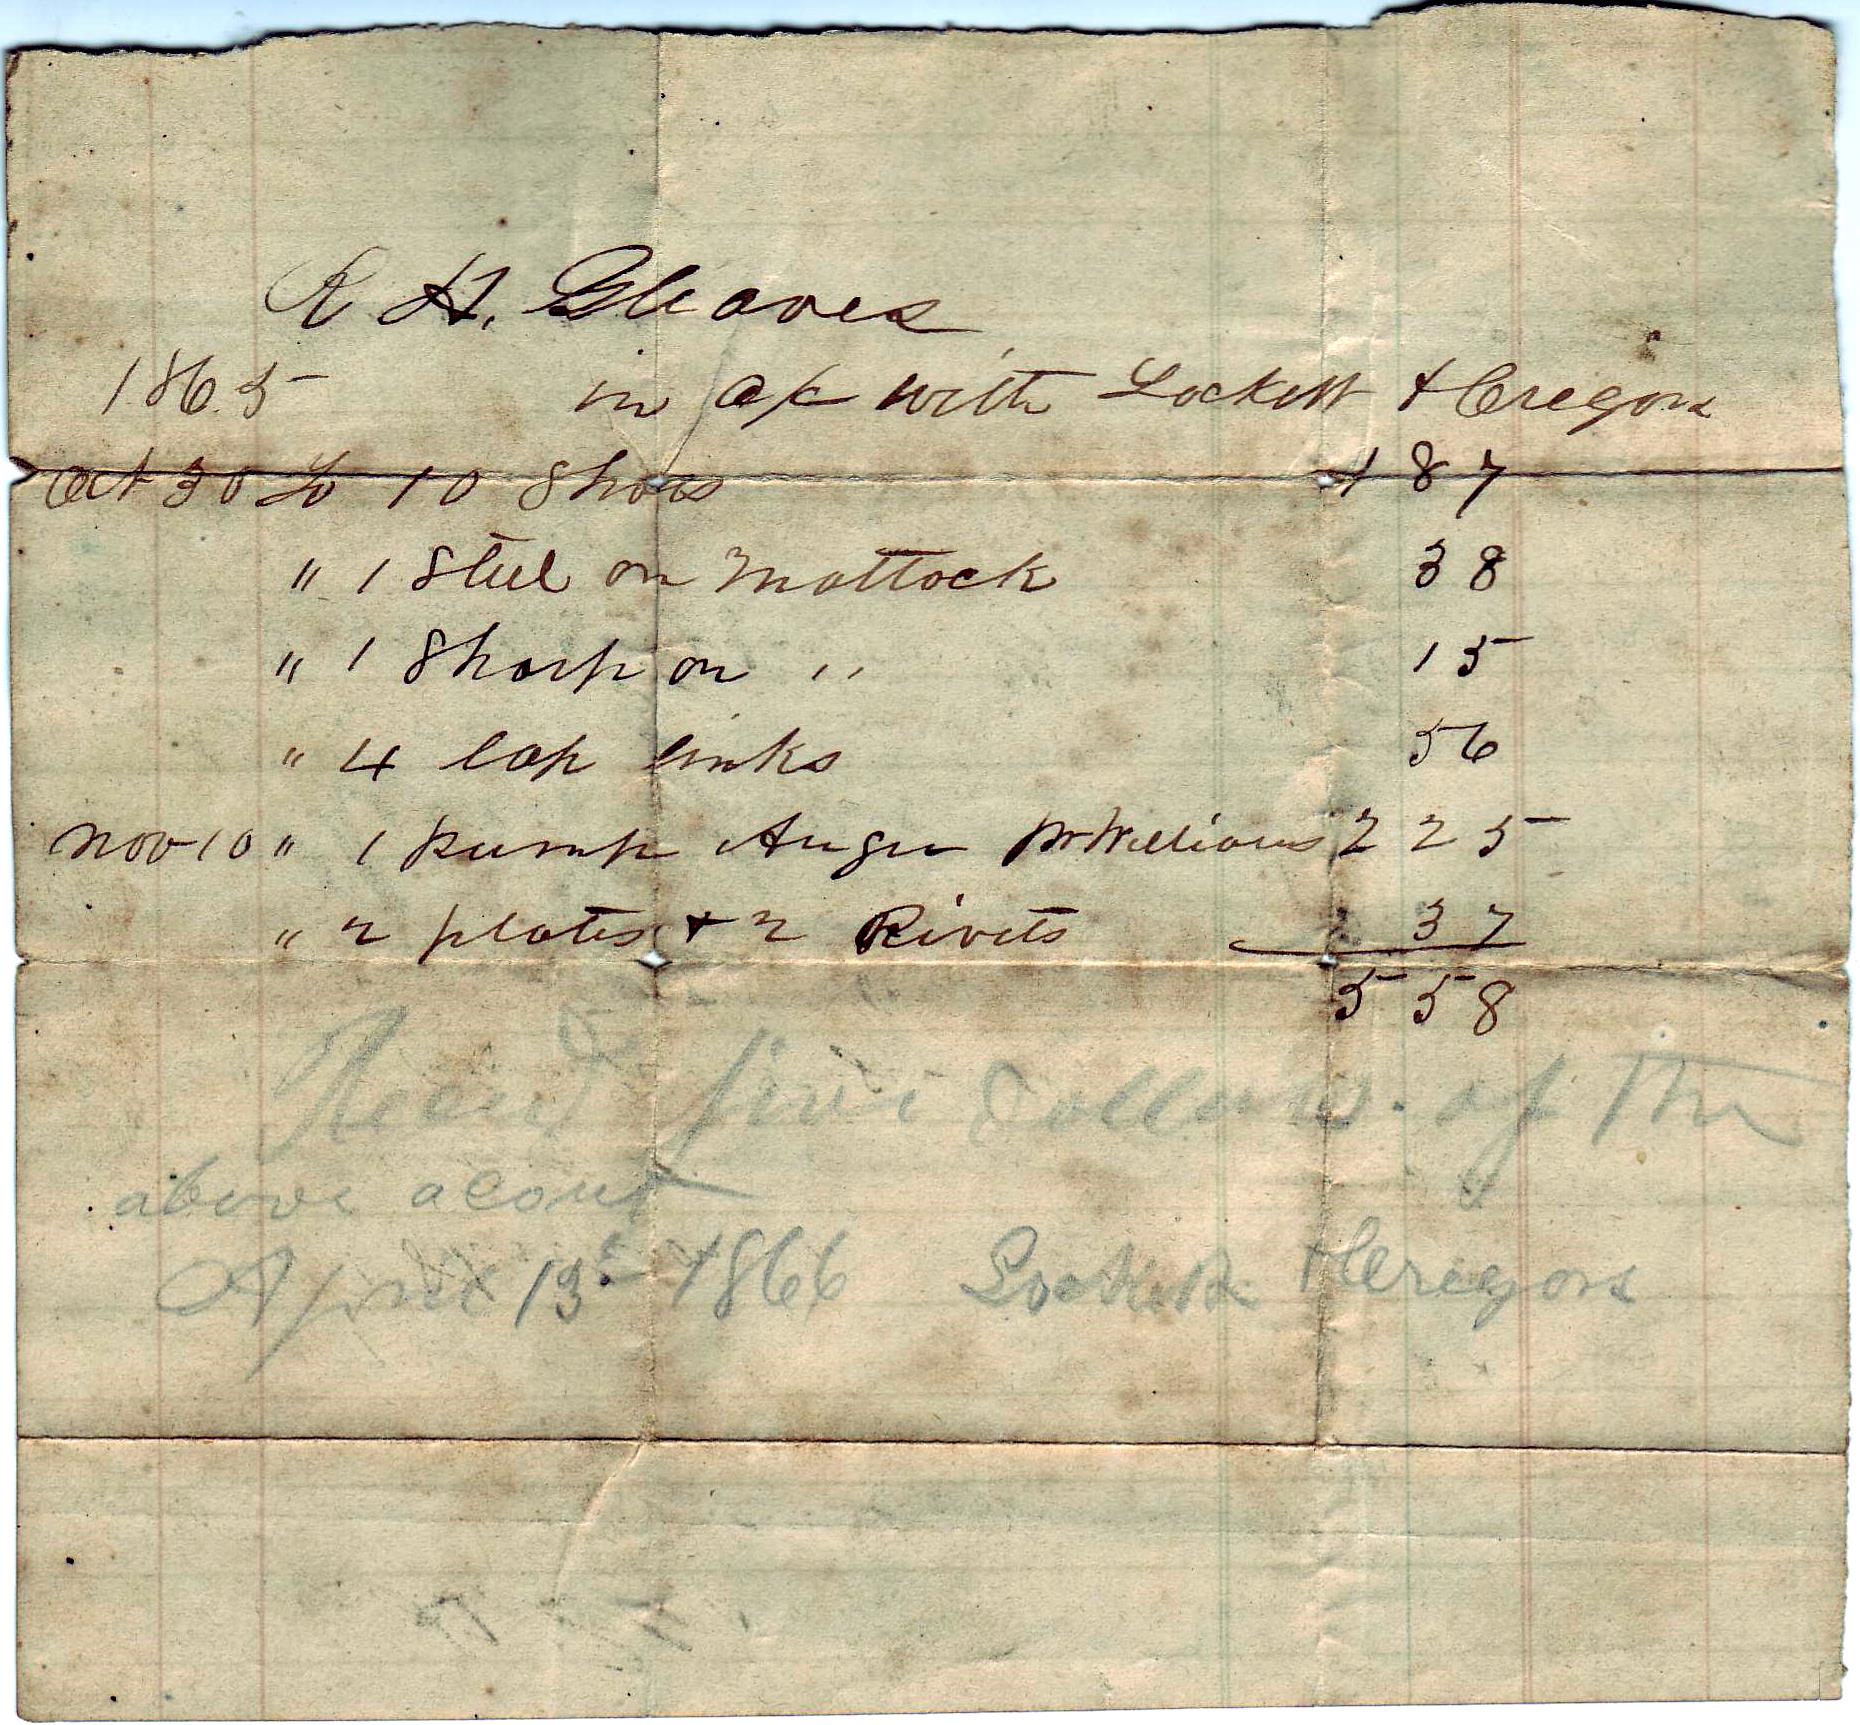 R H. Gleaves
1865 in a/c with Lockett & Cregors
Oct 30 To 10 Shoes 1 87
" 1 Steel on Mattock 38
" 1 Sharp on " 15
" 4 lap links 56
Nov 10 " 1 Pump Auger Mr Williams 2 25
" 2 plates + 2 Rivets 37
5 58
Recd five dollars of the
above acont
April 13t 1866 Lockett & Cregors